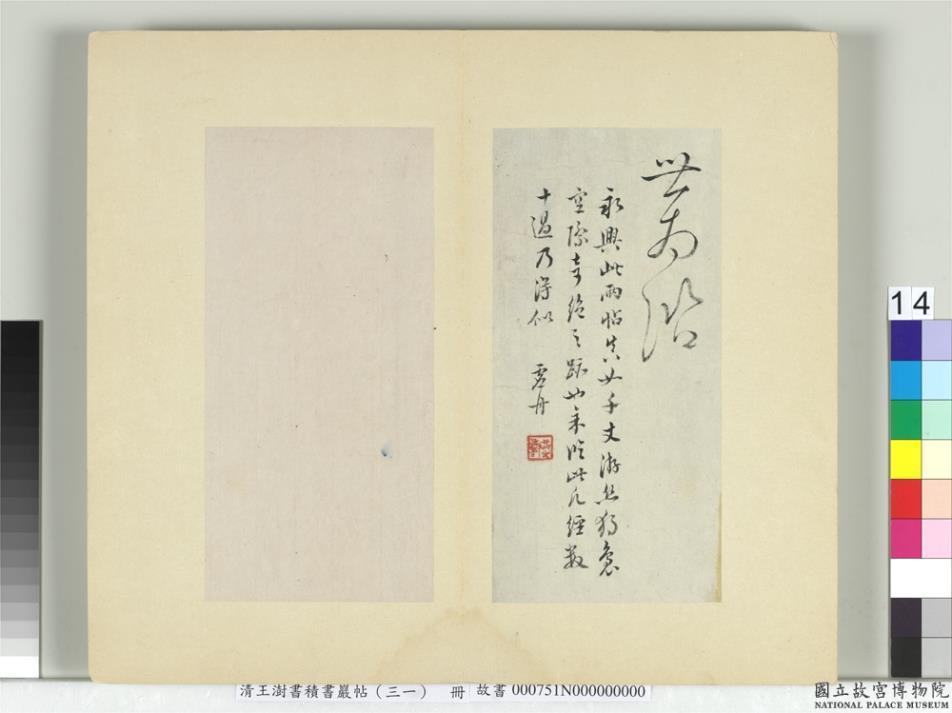 世南
永興此兩帖真如千丈游絲獨裊
空際奇絕之跡也余臨此凡經數
十過乃得似
虛舟
14
清王澍書積書巖帖（三一） 冊 故書 000751N000000000
國立故宮博物院
NATIONAL PALACE MUSEUM